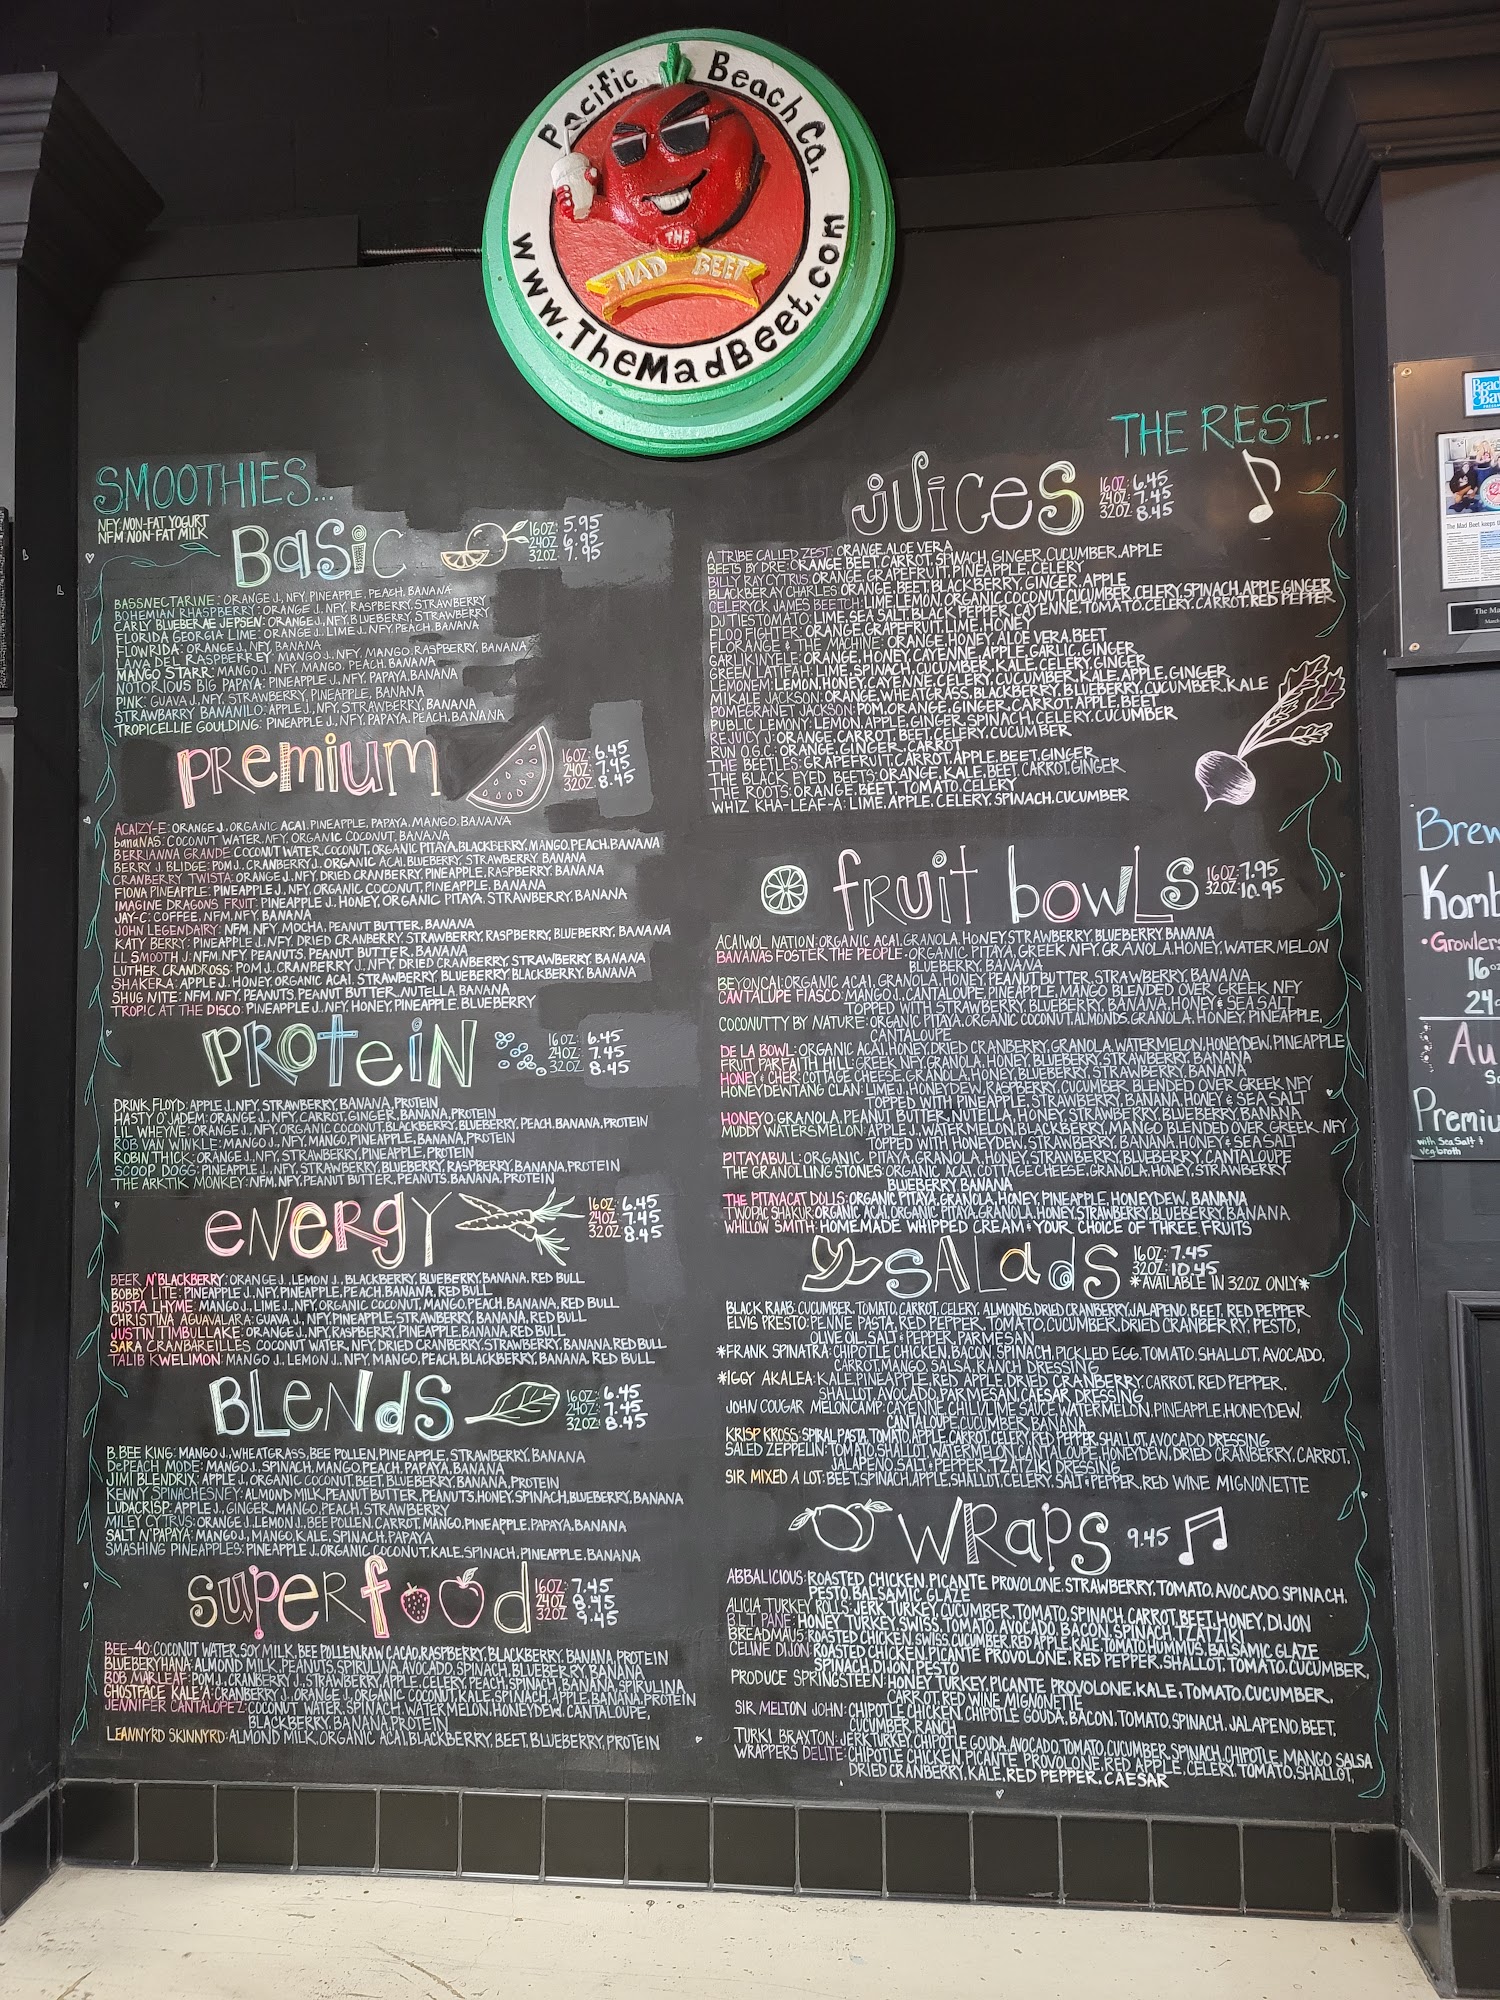 Pacific Beach Co.
THE
MAD BEET
www.TheMadBeet.com
SMOOTHIES...
NFY: NON-FAT YOGURT
NFM NON-FAT MILK
BASIC
16OZ: 5.95
24OZ: 6.95
32OZ: 7.95
BASSNECTARINE: ORANGE J., NFY, PINEAPPLE, PEACH, BANANA
BOHEMIAN RHASPBERRY: ORANGE J., NFY, RASPBERRY, STRAWBERRY
CARLY BLUEBERAE JEPSEN: ORANGE J., NFY, BLUEBERRY, STRAWBERRY
FLORIDA GEORGIA LIME: ORANGE J., LIME J., NFY, PEACH, BANANA
FLOWRIDA: ORANGE J., NFY, BANANA
LANA DEL RASPBERREY: MANGO J., NFY, MANGO, RASPBERRY, BANANA
MANGO STARR: MANGO J., NFY, MANGO, PEACH, BANANA
NOTORIOUS BIG PAPAYA: PINEAPPLE J., NFY, PAPAYA, BANANA
PINK: GUAVA J., NFY, STRAWBERRY, PINEAPPLE, BANANA
STRAWBARRY BANANILO: APPLE J., NFY, STRAWBERRY, BANANA
TROPICELLIE GOULDING: PINEAPPLE J., NFY, PAPAYA, PEACH, BANANA
PREMIUM
16OZ: 6.45
24OZ: 7.45
32OZ: 8.45
ACAIZY-E: ORANGE J., ORGANIC ACAI, PINEAPPLE, PAPAYA, MANGO, BANANA
bananas: COCONUT WATER, NFY, ORGANIC COCONUT, BANANA
BERRIANNA GRANDE: COCONUT WATER, COCONUT, ORGANIC PITAYA, BLACKBERRY, MANGO, PEACH, BANANA
BERRY J. BLIDGE: POM J., CRANBERRY J., ORGANIC ACAI, BLUEBERRY, STRAWBERRY, BANANA
CRANBERRY TWISTA: ORANGE J., NFY, DRIED CRANBERRY, PINEAPPLE, RASPBERRY, BANANA
FIONA PINEAPPLE: PINEAPPLE J., NFY, ORGANIC COCONUT, PINEAPPLE, BANANA
IMAGINE DRAGONS FRUIT: PINEAPPLE J., HONEY, ORGANIC PITAYA, STRAWBERRY, BANANA
JAY-C: COFFEE, NFM, NFY, BANANA
JOHN LEGENDAIRY: NFM, NFY, MOCHA, PEANUT BUTTER, BANANA
KATY BERRY: PINEAPPLE J., NFY, DRIED CRANBERRY, STRAWBERRY, RASPBERRY, BLUEBERRY, BANANA
LL SMOOTH J: NFM, NFY, PEANUTS, PEANUT BUTTER, BANANA
LUTHER CRANDROSS: POM J., CRANBERRY J., NFY, DRIED CRANBERRY, STRAWBERRY, BANANA
SHAKERA: APPLE J., HONEY, ORGANIC ACAI, STRAWBERRY, BLUEBERRY, BLACKBERRY, BANANA
SHUG NITE: NFM, NFY, PEANUTS, PEANUT BUTTER, NUTELLA, BANANA
TROPIC AT THE DISCO: PINEAPPLE J., NFY, HONEY, PINEAPPLE, BLUEBERRY
PROTEIN
16OZ: 6.45
24OZ: 7.45
32OZ: 8.45
DRINK FLOYD: APPLE J., NFY, STRAWBERRY, BANANA, PROTEIN
HASTY O'JADEM: ORANGE J., NFY, CARROT, GINGER, BANANA, PROTEIN
LIL WHEYNE: ORANGE J., NFY, ORGANIC COCONUT, BLACKBERRY, BLUEBERRY, PEACH, BANANA, PROTEIN
ROB VAN WINKLE: MANGO J., NFY, MANGO, PINEAPPLE, BANANA, PROTEIN
ROBIN THICK: ORANGE J., NFY, STRAWBERRY, PINEAPPLE, PROTEIN
SCOOP DOGG: PINEAPPLE J., NFY, STRAWBERRY, BLUEBERRY, RASPBERRY, BANANA, PROTEIN
THE ARKTIK MONKEY: NFM, NFY, PEANUT BUTTER, PEANUTS, BANANA, PROTEIN
ENERGY
16OZ: 6.45
24OZ: 7.45
32OZ: 8.45
BEER N' BLACKBERRY: ORANGE J., LEMON J., BLACKBERRY, BLUEBERRY, BANANA, RED BULL
BOBBY LITE: PINEAPPLE J., NFY, PINEAPPLE, PEACH, BANANA, RED BULL
BUSTA LHYME: MANGO J., LIME J., NFY, ORGANIC COCONUT, MANGO, PEACH, BANANA, RED BULL
CHRISTINA AGUAVALARA: GUAVA J., NFY, PINEAPPLE, STRAWBERRY, BANANA, RED BULL
JUSTIN TIMBULLAKE: ORANGE J., NFY, RASPBERRY, PINEAPPLE, BANANA, RED BULL
SARA CRANBAREILLES: COCONUT WATER, NFY, DRIED CRANBERRY, STRAWBERRY, BANANA, RED BULL
TALIB KWELIMON: MANGO J., LEMON J., NFY, MANGO, PEACH, BLACKBERRY, BANANA, RED BULL
BLENDS
16OZ: 6.45
24OZ: 7.45
32OZ: 8.45
B. BEE KING: MANGO J., WHEATGRASS, BEE POLLEN, PINEAPPLE, STRAWBERRY, BANANA
DePEACH MODE: MANGO J., SPINACH, MANGO, PEACH, PAPAYA, BANANA
JIMI BLENDRIX: APPLE J., ORGANIC COCONUT, BEET, BLUEBERRY, BANANA, PROTEIN
KENNY SPINACHESNEY: ALMOND MILK, PEANUT BUTTER, PEANUTS, HONEY, SPINACH, BLUEBERRY, BANANA
LUDACRISP: APPLE J., GINGER, MANGO, PEACH, STRAWBERRY
MILEY CYTRUS: ORANGE J., LEMON J., BEE POLLEN, CARROT, MANGO, PINEAPPLE, PAPAYA, BANANA
SALT N' PAPAYA: MANGO J., MANGO, KALE, SPINACH, PAPAYA
SMASHING PINEAPPLES: PINEAPPLE J., ORGANIC COCONUT, KALE, SPINACH, PINEAPPLE, BANANA
SUPERFOOD
16OZ: 7.45
24OZ: 8.45
32OZ: 9.45
BEE-40: COCONUT WATER, SOY MILK, BEE POLLEN, RAW CACAO, RASPBERRY, BLACKBERRY, BANANA, PROTEIN
BLUEBERYHANA: ALMOND MILK, PEANUTS, SPIRULINA, AVOCADO, SPINACH, BLUEBERRY, BANANA
BOB MARLEAF: POM J., CRANBERRY J., STRAWBERRY, APPLE, CELERY, PEACH, SPINACH, BANANA, SPIRULINA
GHOSTFACE KALE'A: CRANBERRY J., ORANGE J., ORGANIC COCONUT, KALE, SPINACH, APPLE, BANANA, PROTEIN
JENNIFER CANTALOPEZ: COCONUT WATER, SPINACH, WATERMELON, HONEYDEW, CANTALOUPE,
BLACKBERRY, BANANA, PROTEIN
LEANNYRD SKINNYRD: ALMOND MILK, ORGANIC ACAI, BLACKBERRY, BEET, BLUEBERRY, PROTEIN
THE REST...
JUICES
16OZ: 6.45
24OZ: 7.45
32OZ: 8.45
A TRIBE CALLED ZEST: ORANGE, ALOE VERA
BEETS BY DRE: ORANGE, BEET, CARROT, SPINACH, GINGER, CUCUMBER, APPLE
BILLY RAY CYTRUS: ORANGE, GRAPEFRUIT, PINEAPPLE, CELERY
BLACKBERAY CHARLES: ORANGE, BEET, BLACKBERRY, GINGER, APPLE
CELERYCK JAMES BEETCH: LIME, LEMON, ORGANIC COCONUT, CUCUMBER, CELERY, SPINACH, APPLE, GINGER
DJ TIESTOMATO: LIME, SEA SALT, BLACK PEPPER, CAYENNE, TOMATO, CELERY, CARROT, RED PEPPER
FLOO FIGHTER: ORANGE, GRAPEFRUIT, LIME, HONEY
FLORANGE & THE MACHINE: ORANGE, HONEY, ALOE VERA, BEET
GARLIKINYELE: ORANGE, HONEY, CAYENNE, APPLE, GARLIC, GINGER
GREEN LATIFAH: LIME, SPINACH, CUCUMBER, KALE, CELERY, GINGER
LEMONEM: LEMON, HONEY, CAYENNE, CELERY, CUCUMBER, KALE, APPLE, GINGER
MIKALE JACKSON: ORANGE, WHEATGRASS, BLACKBERRY, BLUEBERRY, CUCUMBER, KALE
POMEGRANET JACKSON: POM, ORANGE, GINGER, CARROT, APPLE, BEET
PUBLIC LEMONY: LEMON, APPLE, GINGER, SPINACH, CELERY, CUCUMBER
REJUICY J: ORANGE, CARROT, BEET, CELERY, CUCUMBER
RUN O.G.C.: ORANGE, GINGER, CARROT
THE BEETLES: GRAPEFRUIT, CARROT, APPLE, BEET, GINGER
THE BLACK EYED BEETS: ORANGE, KALE, BEET, CARROT, GINGER
THE ROOTS: ORANGE, BEET, TOMATO, CELERY
WHIZ KHA-LEAF-A: LIME, APPLE, CELERY, SPINACH, CUCUMBER
FRUIT BOWLS
16OZ: 7.95
32OZ: 10.95
ACAIWOL NATION: ORGANIC ACAI, GRANOLA, HONEY, STRAWBERRY, BLUEBERRY, BANANA
BANANAS FOSTER THE PEOPLE: ORGANIC PITAYA, GREEK NFY, GRANOLA, HONEY, WATERMELON
BLUEBERRY, BANANA
BEYONCAI: ORGANIC ACAI, GRANOLA, HONEY, PEANUT BUTTER, STRAWBERRY, BANANA
CANTALUPE FIASCO: MANGO J., CANTALOUPE, PINEAPPLE, MANGO BLENDED OVER GREEK NFY
TOPPED WITH STRAWBERRY, BLUEBERRY, BANANA, HONEY & SEA SALT
COCONUTTY BY NATURE: ORGANIC PITAYA, ORGANIC COCONUT, ALMONDS, GRANOLA, HONEY, PINEAPPLE,
CANTALOUPE
DE LA BOWL: ORGANIC ACAI, HONEY, DRIED CRANBERRY, GRANOLA, WATERMELON, HONEYDEW, PINEAPPLE
FRUIT PARFAITH HILL: GREEK NFY, GRANOLA, HONEY, BLUEBERRY, STRAWBERRY, BANANA
HONEY & CHER: COTTAGE CHEESE, GRANOLA, HONEY, BLUEBERRY, STRAWBERRY, BANANA
HONEYDEWTANG CLAN: LIME J., HONEYDEW, RASPBERRY, CUCUMBER BLENDED OVER GREEK NFY
TOPPED WITH PINEAPPLE, STRAWBERRY, BANANA, HONEY & SEA SALT
HONEYO: GRANOLA, PEANUT BUTTER, NUTELLA, HONEY, STRAWBERRY, BLUEBERRY, BANANA
MUDDY WATERSMELON: APPLE J., WATERMELON, BLACKBERRY, MANGO BLENDED OVER GREEK NFY
TOPPED WITH HONEYDEW, STRAWBERRY, BANANA, HONEY & SEA SALT
PITAYABULL: ORGANIC PITAYA, GRANOLA, HONEY, STRAWBERRY, BLUEBERRY, CANTALOUPE
THE GRANOLLING STONES: ORGANIC ACAI, COTTAGE CHEESE, GRANOLA, HONEY, STRAWBERRY
BLUEBERRY, BANANA
THE PITAYACAT DOLLS: ORGANIC PITAYA, GRANOLA, HONEY, PINEAPPLE, HONEYDEW, BANANA
TWOPAC SHAKUR: ORGANIC ACAI, ORGANIC PITAYA, GRANOLA, HONEY, STRAWBERRY, BLUEBERRY, BANANA
WHILLOW SMITH: HOMEMADE WHIPPED CREAM & YOUR CHOICE OF THREE FRUITS
SALADS
16OZ: 7.45
32OZ: 10.45
*AVAILABLE IN 32OZ ONLY*
BLACK RAAB: CUCUMBER, TOMATO, CARROT, CELERY, ALMONDS, DRIED CRANBERRY, JALAPENO, BEET, RED PEPPER
ELVIS PRESTO: PENNE PASTA, RED PEPPER, TOMATO, CUCUMBER, DRIED CRANBERRY, PESTO,
OLIVE OIL, SALT & PEPPER, PARMESAN
*FRANK SPINATRA: CHIPOTLE CHICKEN, BACON, SPINACH, PICKLED EGG, TOMATO, SHALLOT, AVOCADO,
CARROT, MANGO, SALSA, RANCH DRESSING
*IGGY AKALEA: KALE, PINEAPPLE, RED APPLE, DRIED CRANBERRY, CARROT, RED PEPPER,
SHALLOT, AVOCADO, PARMESAN, CAESAR DRESSING
JOHN COUGAR MELONCAMP: CAYENNE CHILI/LIME SAUCE, WATERMELON, PINEAPPLE, HONEYDEW,
CANTALOUPE, CUCUMBER, BANANA
KRISP KROSS: SPIRAL PASTA, TOMATO, APPLE, CARROT, CELERY, RED PEPPER, SHALLOT, AVOCADO DRESSING
SALED ZEPPELIN: TOMATO, SHALLOT, WATERMELON, CANTALOUPE, HONEYDEW, DRIED CRANBERRY, CARROT,
JALAPENO, SALT & PEPPER, TZATZIKI DRESSING
SIR MIXED A LOT: BEET, SPINACH, APPLE, SHALLOT, CELERY, SALT & PEPPER, RED WINE MIGNONETTE
WRAPS
9.45
ABBALICIOUS: ROASTED CHICKEN, PICANTE PROVOLONE, STRAWBERRY, TOMATO, AVOCADO, SPINACH,
PESTO, BALSAMIC GLAZE
ALICIA TURKEY ROLLS: JERK TURKEY, CUCUMBER, TOMATO, SPINACH, CARROT, BEET, HONEY, DIJON
B.L.T. PANE: HONEY TURKEY, SWISS, TOMATO, AVOCADO, BACON, SPINACH, TZATZIKI
BREADMAU5: ROASTED CHICKEN, SWISS, CUCUMBER, RED APPLE, KALE, TOMATO, HUMMUS, BALSAMIC GLAZE
CELINE DIJON: ROASTED CHICKEN, PICANTE PROVOLONE, RED PEPPER, SHALLOT, TOMATO, CUCUMBER,
SPINACH, DIJON, PESTO
PRODUCE SPRINGSTEEN: HONEY TURKEY, PICANTE PROVOLONE, KALE, TOMATO, CUCUMBER,
CARROT, RED WINE MIGNONETTE
SIR MELTON JOHN: CHIPOTLE CHICKEN, CHIPOTLE GOUDA, BACON, TOMATO, SPINACH, JALAPENO, BEET,
CUCUMBER, RANCH
TURKI BRAXTON: JERK TURKEY, CHIPOTLE GOUDA, AVOCADO, TOMATO, CUCUMBER, SPINACH, CHIPOTLE MANGO SALSA
WRAPPERS DELITE: CHIPOTLE CHICKEN, PICANTE PROVOLONE, RED APPLE, CELERY, TOMATO, SHALLOT,
DRIED CRANBERRY, KALE, RED PEPPER, CAESAR
The Mad Beet keeps
Brew
Komb
•Growlers
16oz
24
Au
Premiu
with Sea Salt &
Veg broth